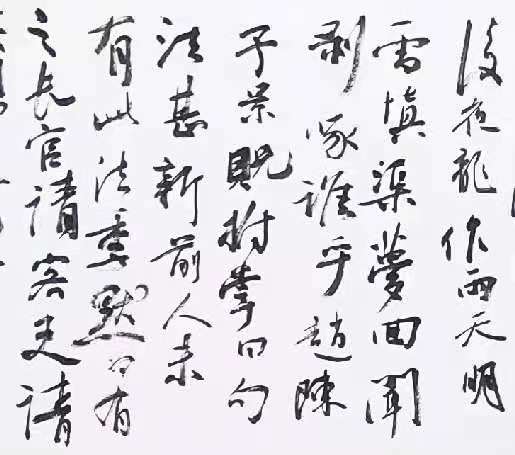 後夜龍作雨天明
雪填渠夢回聞
剥啄誰乎趙陳
予景貺拊掌曰句
法甚新前人未
有此法季默曰有
之長官請客吏請